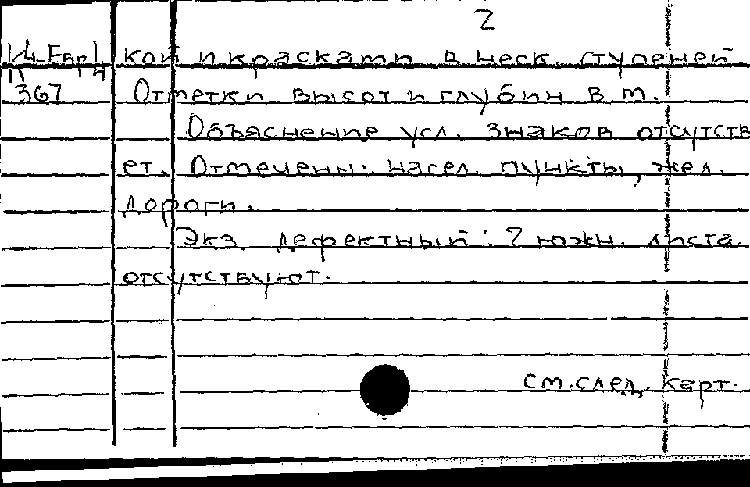 2
И4-Евр/4 кой и красками в неск. ступеней
367 Отметки высот и глубин в м.
Объяснение усл. знаков отсутств
ет. Отмечены: насел. пункты, жел.
дороги.
Экз. дефектный: 2 южн. листа
отсутствуют.
см. след. карт.